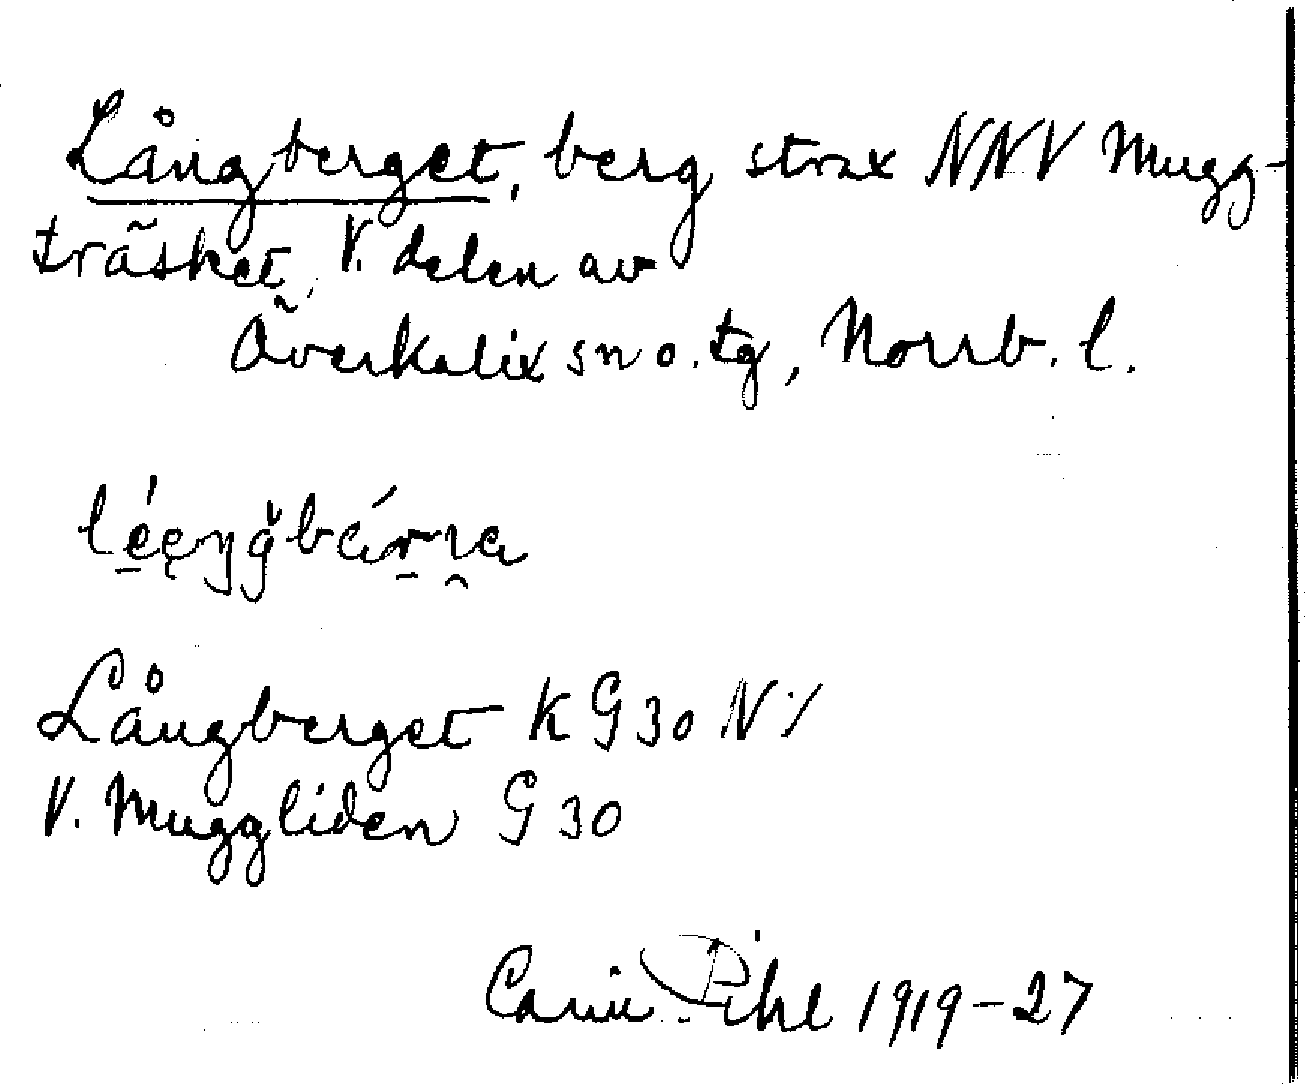 Långberget, berg strax NNV Mugg-
träsket, V. delen av
Överkalix sn o. tg, Norrb. l.
Långberget K G 30 N ⁒
V. Muggliden G 30
Carin Pihl 1919-27